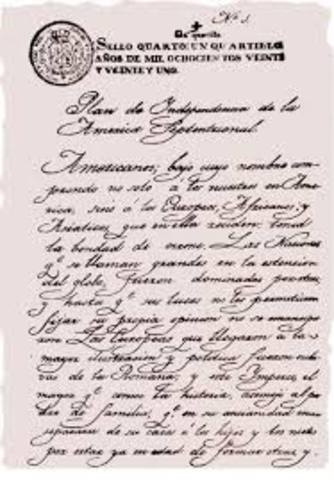 Nº 1.
Un quartillo
SELLO QUARTO, UN QUARTILLO,
AÑOS DE MIL OCHOCIENTOS VEINTE
Y VEINTE Y UNO.
Plan de Independencia de la
America Septentrional.
Americanos, bajo cuyo nombre com-
prendo no solo á los nacidos en Ame-
rica, sino á los Europeos, Africanos, y
Asiaticos, que en ella residen: tened
la bondad de oirme. Las Naciones
q.e se llaman grandes en la extension
del globo, fueron dominadas por otras,
y hasta q.e sus luces no les permitieron
fijar su propia opinion no se emancipa-
ron. Las Europeas que llegaron á la
mayor ilustracion y politica fueron escla-
vas de la Romana; y este Imperio, el
mayor q.e conoce la historia, asemejó al pa-
dre de familias, q.e en su ancianidad mira
separarse de su casa á los hijos y los nietos
por estar ya en edad de formar otras, y